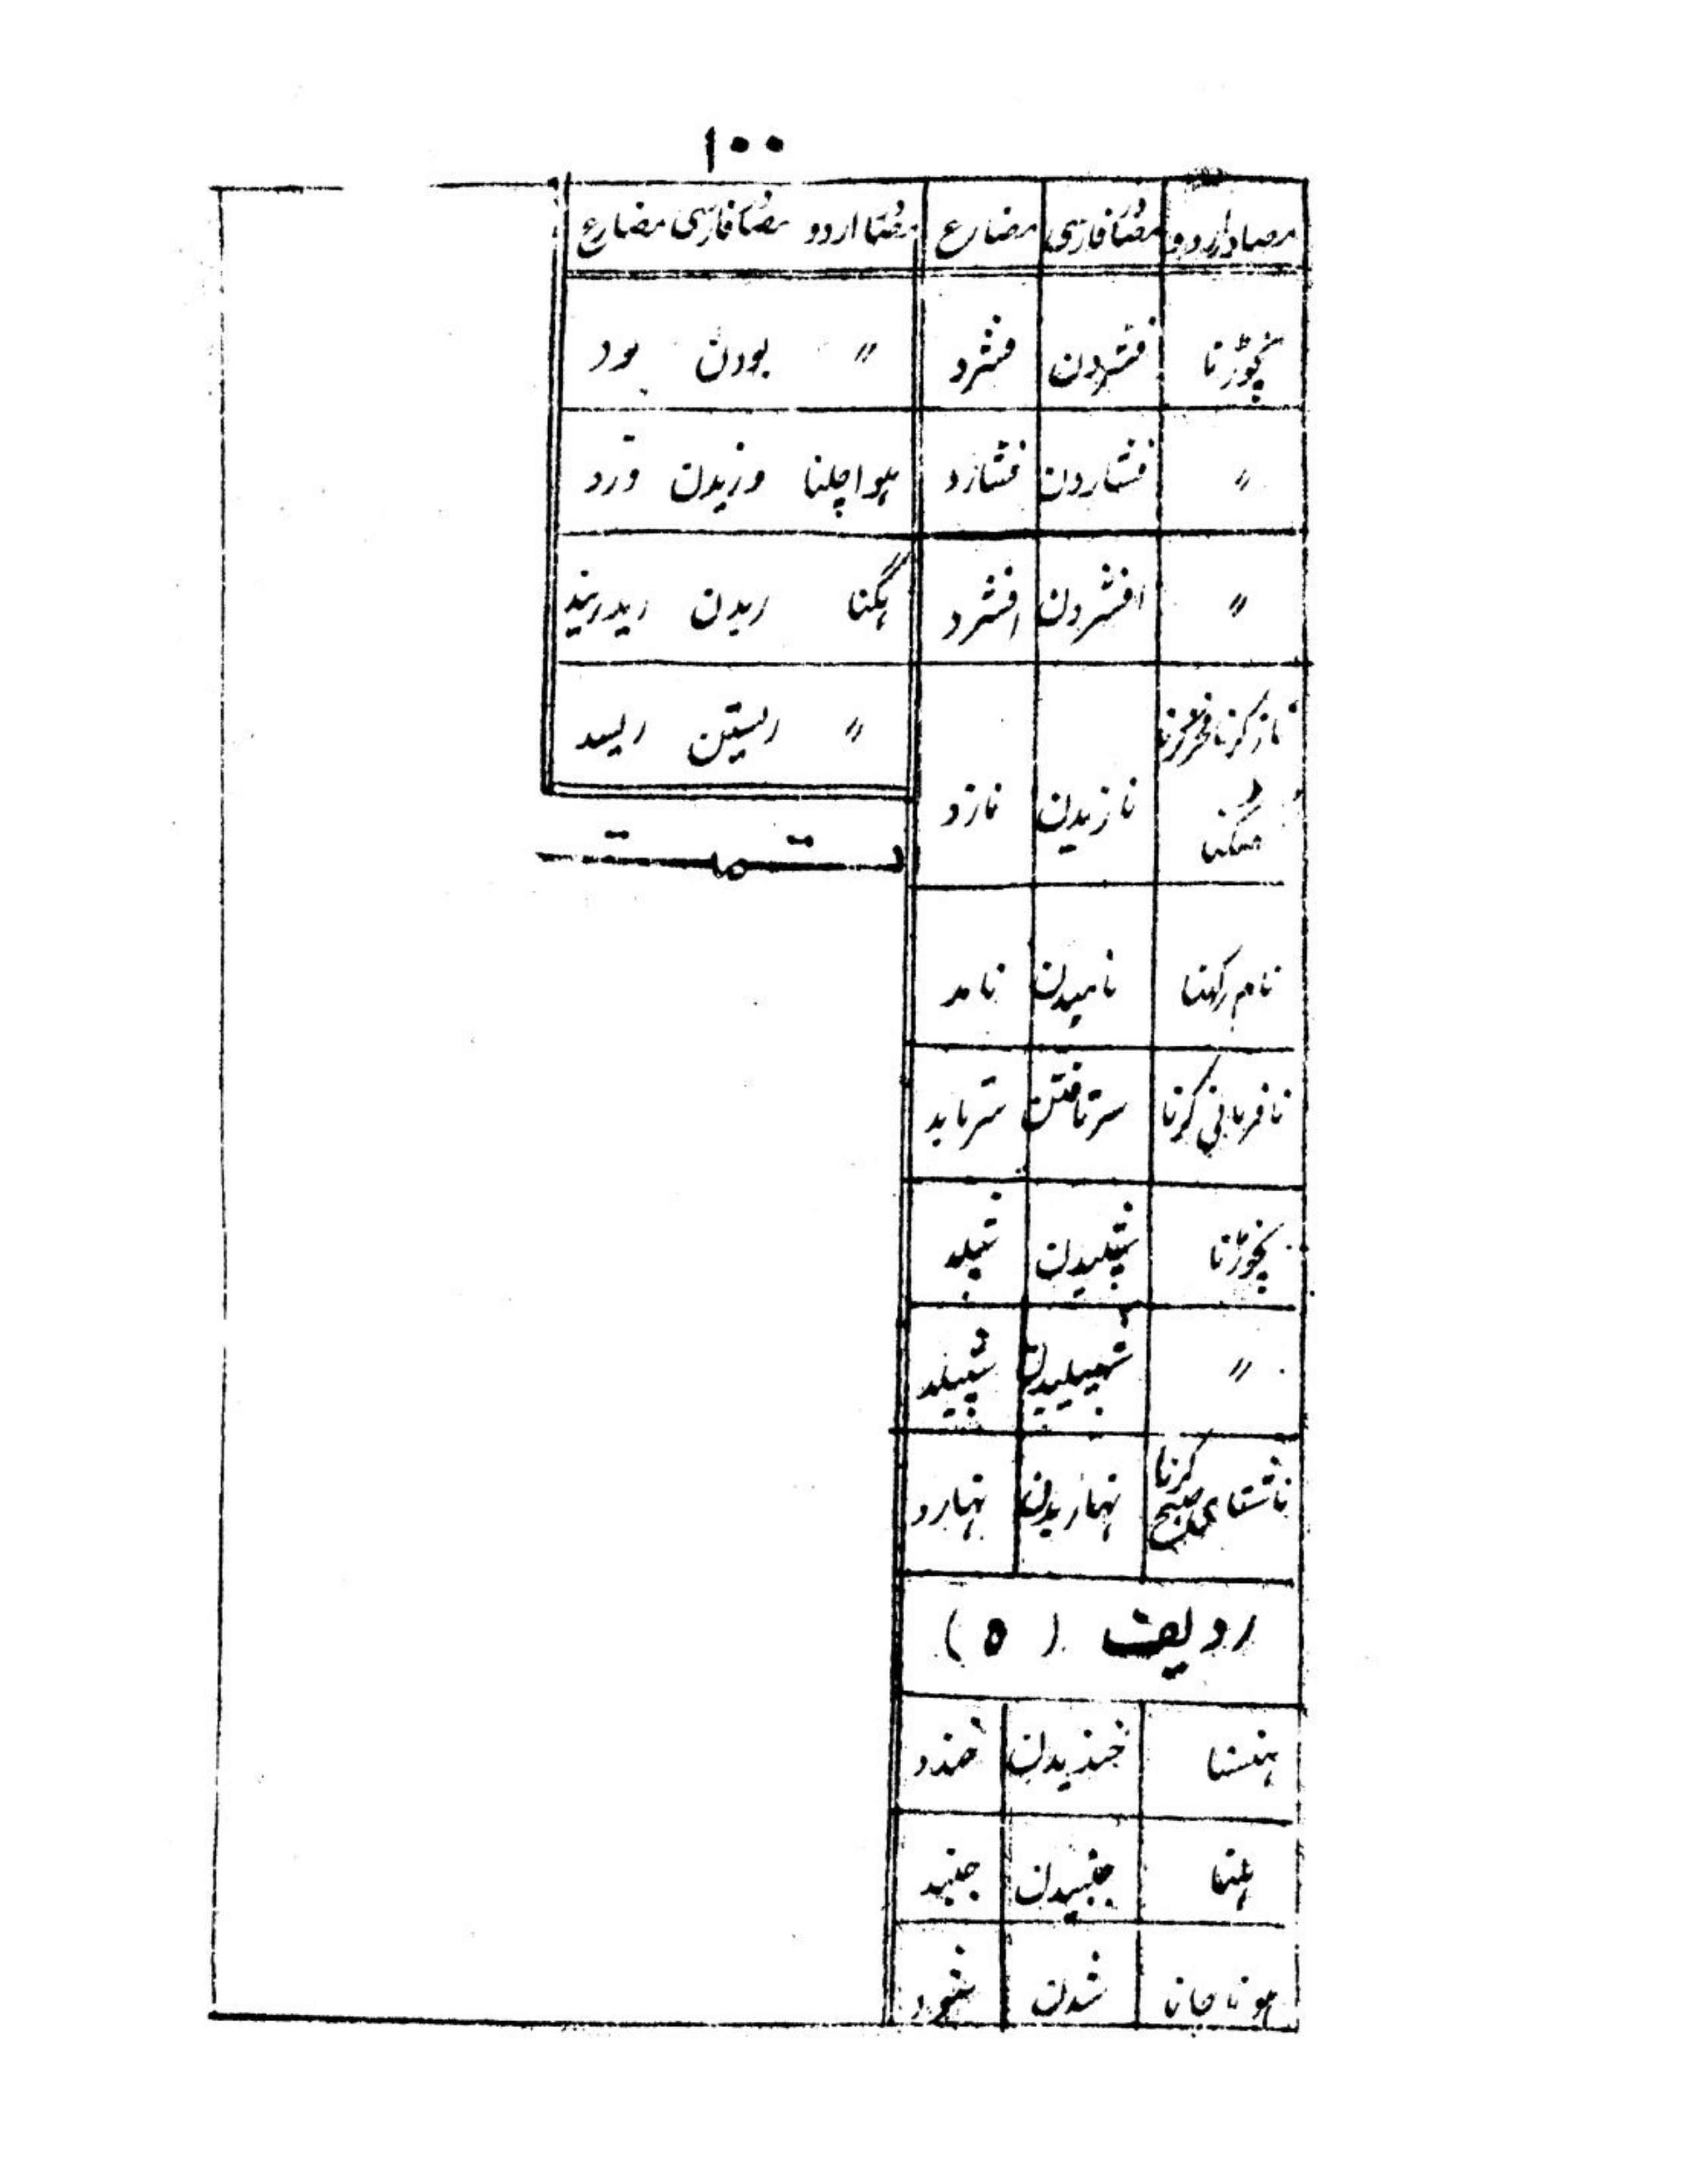 ۱۰۰
مصادر اردو مصادر فارسی مضارع
نچوڑنا فشردن فشرد
〃 فشاردن فشارد
〃 افشردن افشرد
ناز کرنا فخر کرنا
نازیدن نازد
نام رکھنا نامیدن نامد
نافرمانی کرنا سرتافتن سرتابد
نچوڑنا شپلیدن شپلد
〃 شپیلیدن شپیلد
ناشتای صبح کرنا نہاریدن نہارد
ردیف (ہ)
ہنسنا خندیدن خندد
ہلنا جنبیدن جنبد
ہونا جانا شدن شود
مصا اردو مصا فارسی مضارع
〃 بودن بود
ہوا چلنا وزیدن وزد
ہگنا ریدن رید ریند
〃 ریستن ریسد
تمت